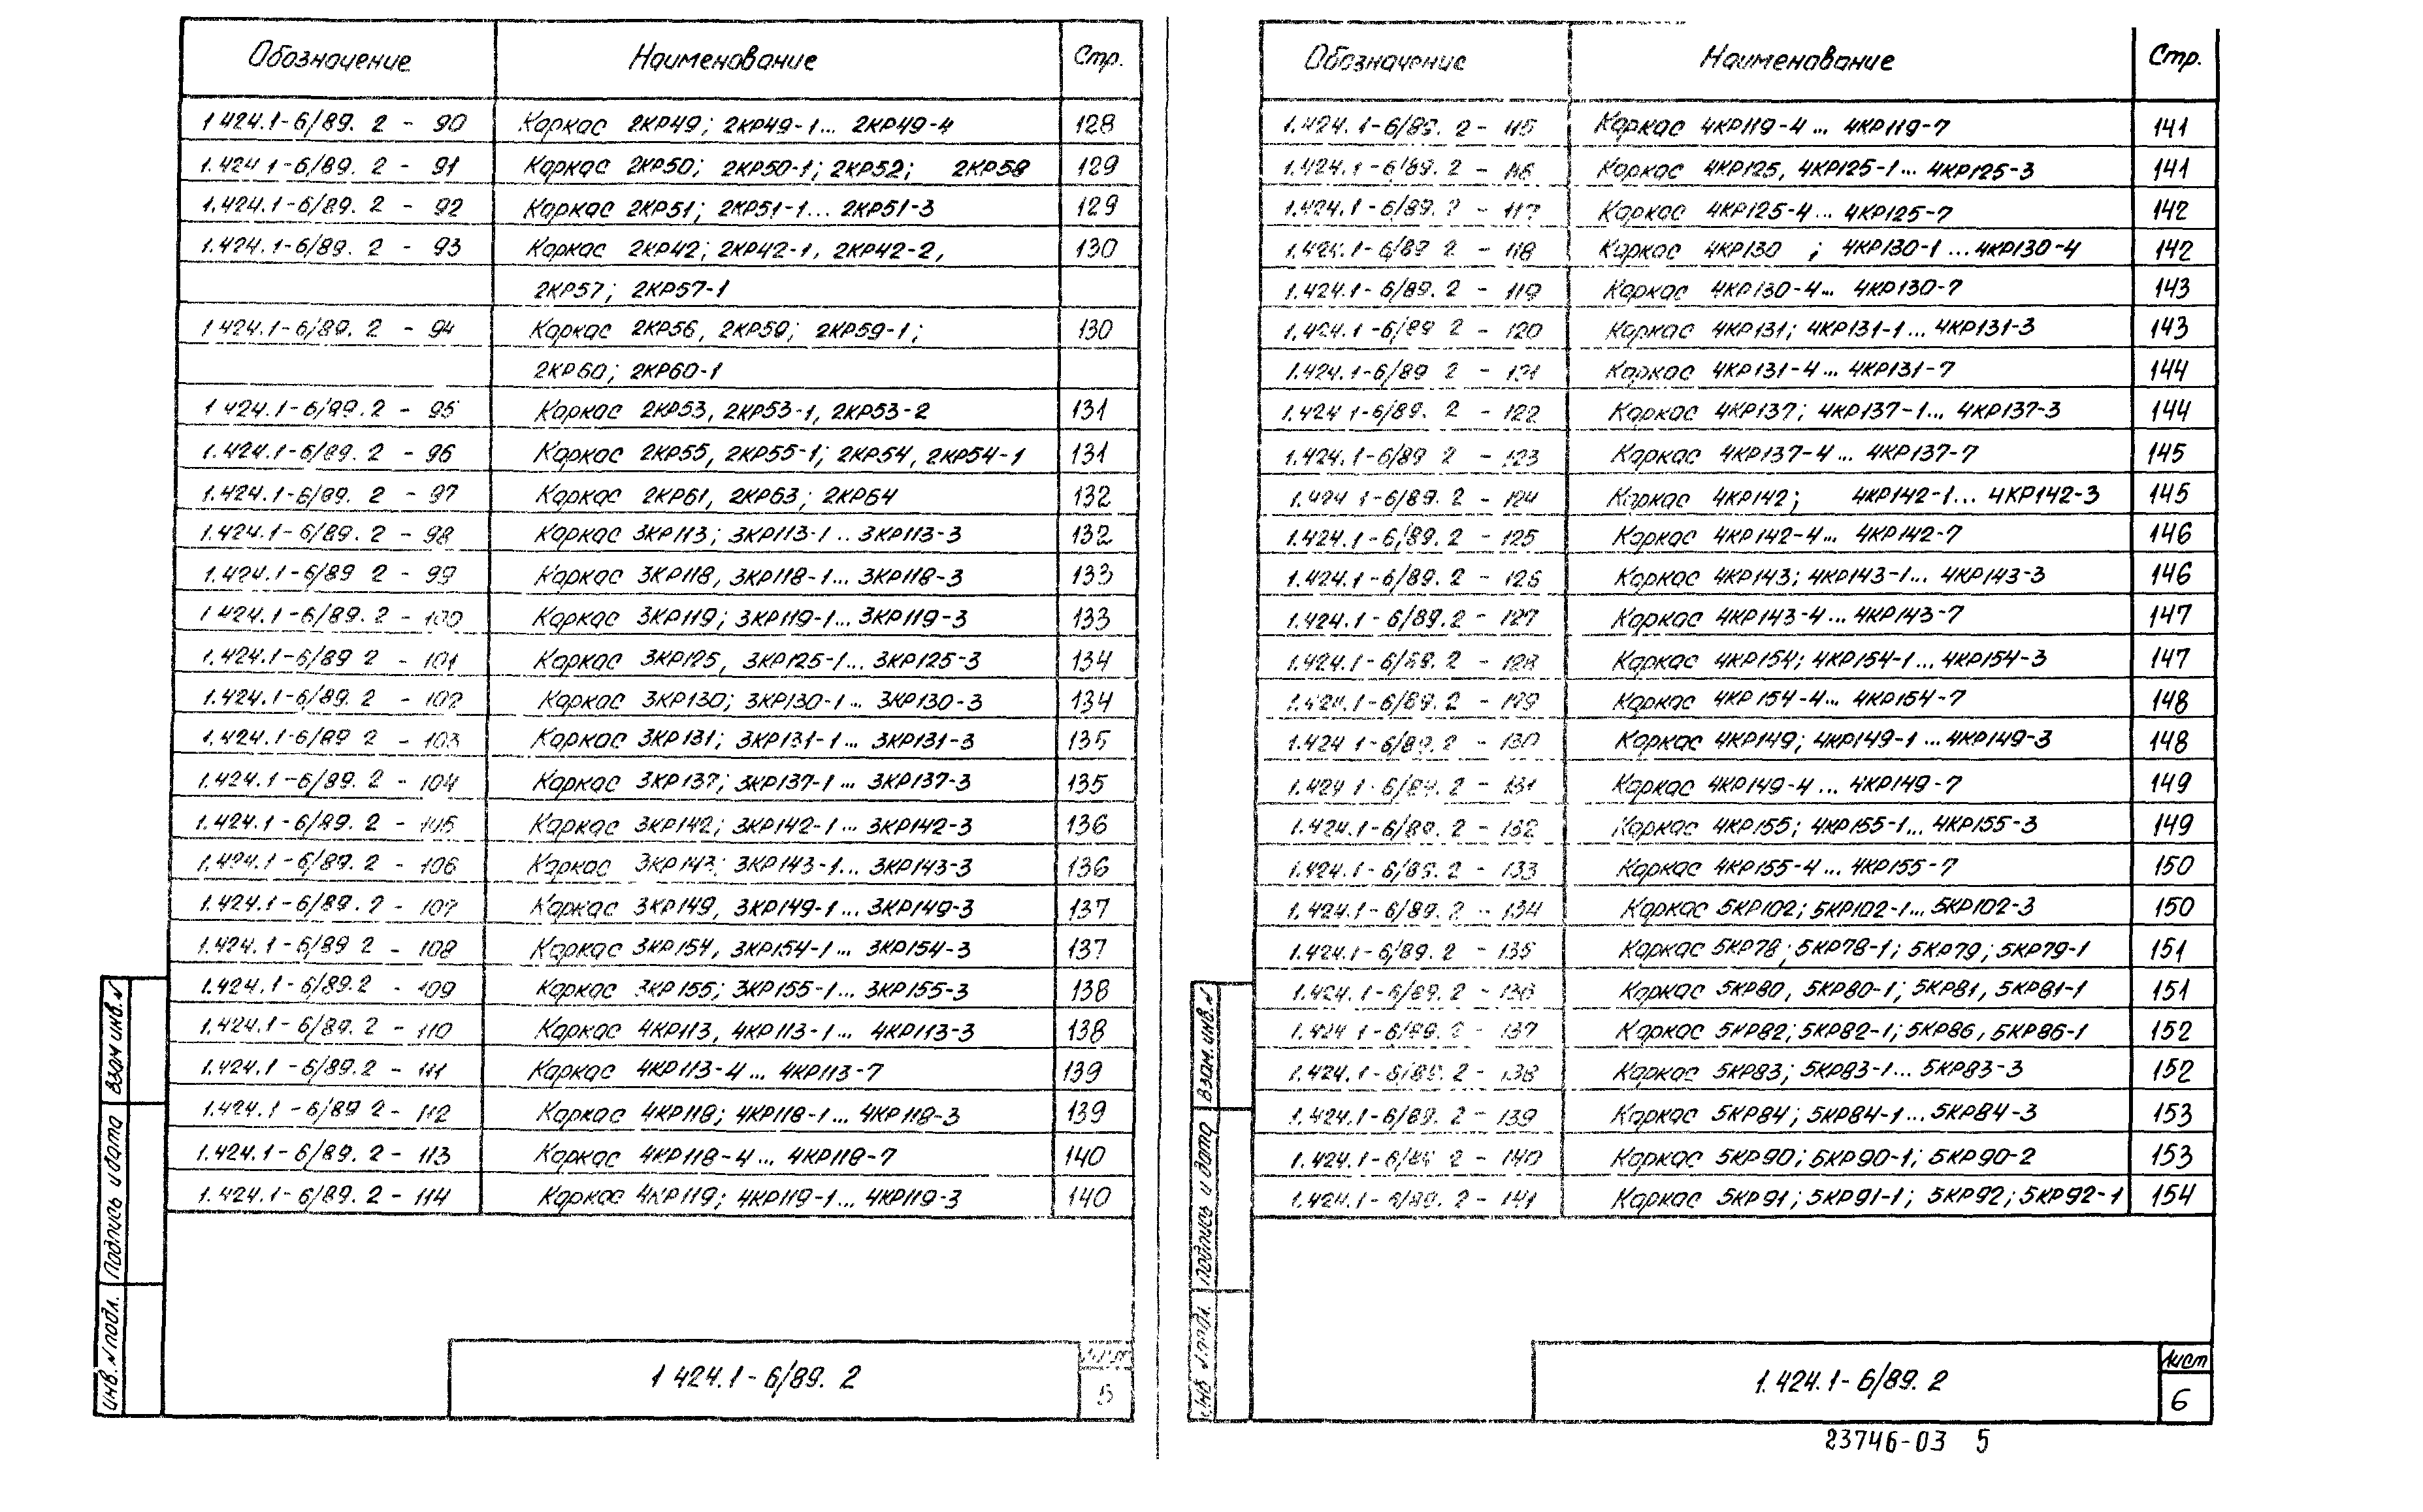 Обозначение Наименование Стр.
1 424.1-6/89. 2 - 90 Каркас 2КР49; 2КР49-1... 2КР49-4 128
1.424 1-6/89. 2 - 91 Каркас 2КР50; 2КР50-1; 2КР52; 2КР58 129
1.424.1-6/89. 2 - 92 Каркас 2КР51; 2КР51-1... 2КР51-3 129
1.424.1-6/89. 2 - 93 Каркас 2КР42; 2КР42-1, 2КР42-2, 130
2КР57; 2КР57-1
1 424.1-6/89. 2 - 94 Каркас 2КР56, 2КР59; 2КР59-1; 130
2КР60; 2КР60-1
1 424.1-6/89.2 - 95 Каркас 2КР53, 2КР53-1, 2КР53-2 131
1.424.1-6/89. 2 - 96 Каркас 2КР55, 2КР55-1; 2КР54, 2КР54-1 131
1.424.1-6/89. 2 - 97 Каркас 2КР61, 2КР63; 2КР64 132
1.424.1-6/89. 2 - 98 Каркас 3КР113; 3КР113-1 .. 3КР113-3 132
1.424.1-6/89 2 - 99 Каркас 3КР118, 3КР118-1... 3КР118-3 133
1 424.1-6/89. 2 - 100 Каркас 3КР119; 3КР119-1... 3КР119-3 133
1.424.1-6/89 2 - 101 Каркас 3КР125, 3КР125-1... 3КР125-3 134
1.424.1-6/89. 2 - 102 Каркас 3КР130; 3КР130-1... 3КР130-3 134
1.424.1-6/89 2 - 103 Каркас 3КР131; 3КР131-1... 3КР131-3 135
1.424.1-6/89. 2 - 104 Каркас 3КР137; 3КР137-1... 3КР137-3 135
1.424.1-6/89. 2 - 105 Каркас 3КР142; 3КР142-1... 3КР142-3 136
1.424.1-6/89. 2 - 106 Каркас 3КР143; 3КР143-1... 3КР143-3 136
1.424.1-6/89. 2 - 107 Каркас 3КР149, 3КР149-1... 3КР149-3 137
1.424.1-6/89 2 - 108 Каркас 3КР154, 3КР154-1... 3КР154-3 137
1.424.1-6/89.2 - 109 Каркас 3КР155; 3КР155-1... 3КР155-3 138
1.424.1-6/89. 2 - 110 Каркас 4КР113, 4КР113-1... 4КР113-3 138
1.424.1-6/89.2 - 111 Каркас 4КР113-4... 4КР113-7 139
1.424.1-6/89 2 - 112 Каркас 4КР118; 4КР118-1... 4КР118-3 139
1.424.1-6/89. 2 - 113 Каркас 4КР118-4... 4КР118-7 140
1.424.1-6/89. 2 - 114 Каркас 4КР119; 4КР119-1... 4КР119-3 140
Взам инв.№
Подпись и дата
Инв.№ подл.
1 424.1-6/89. 2
Лист
5
Обозначение Наименование Стр.
1.424.1-6/89. 2 - 115 Каркас 4КР119-4... 4КР119-7 141
1.424.1-6/89. 2 - 116 Каркас 4КР125, 4КР125-1... 4КР125-3 141
1.424.1-6/89. 2 - 117 Каркас 4КР125-4... 4КР125-7 142
1.424.1-6/89 2 - 118 Каркас 4КР130 ; 4КР130-1 ...4КР130-4 142
1.424.1-6/89. 2 - 119 Каркас 4КР130-4... 4КР130-7 143
1.424.1-6/89 2 - 120 Каркас 4КР131; 4КР131-1... 4КР131-3 143
1.424.1-6/89 2 - 121 Каркас 4КР131-4... 4КР131-7 144
1.424 1-6/89. 2 - 122 Каркас 4КР137; 4КР137-1... 4КР137-3 144
1.424.1-6/89 2 - 123 Каркас 4КР137-4... 4КР137-7 145
1.424 1-6/89. 2 - 124 Каркас 4КР142; 4КР142-1... 4КР142-3 145
1.424.1-6/89. 2 - 125 Каркас 4КР142-4... 4КР142-7 146
1.424.1-6/89. 2 - 126 Каркас 4КР143; 4КР143-1... 4КР143-3 146
1.424.1-6/89.2 - 127 Каркас 4КР143-4... 4КР143-7 147
1.424.1-6/89. 2 - 128 Каркас 4КР154; 4КР154-1... 4КР154-3 147
1.424.1-6/89. 2 - 129 Каркас 4КР154-4... 4КР154-7 148
1.424 1-6/89. 2 - 130 Каркас 4КР149; 4КР149-1 ...4КР149-3 148
1.424 1-6/89. 2 - 131 Каркас 4КР149-4... 4КР149-7 149
1.424.1-6/89. 2 - 132 Каркас 4КР155; 4КР155-1... 4КР155-3 149
1.424.1-6/89. 2 - 133 Каркас 4КР155-4... 4КР155-7 150
1.424.1-6/89. 2 - 134 Каркас 5КР102; 5КР102-1... 5КР102-3 150
1.424.1-6/89. 2 - 135 Каркас 5КР78; 5КР78-1; 5КР79; 5КР79-1 151
1.424.1-6/89. 2 - 136 Каркас 5КР80, 5КР80-1; 5КР81, 5КР81-1 151
1.424 1-6/89. 2 - 137 Каркас 5КР82; 5КР82-1; 5КР86, 5КР86-1 152
1.424.1-6/89. 2 - 138 Каркас 5КР83; 5КР83-1... 5КР83-3 152
1.424.1-6/89. 2 - 139 Каркас 5КР84; 5КР84-1... 5КР84-3 153
1.424.1-6/89 2 - 140 Каркас 5КР90; 5КР90-1; 5КР90-2 153
1.424.1-6/89. 2 - 141 Каркас 5КР91; 5КР91-1; 5КР92; 5КР92-1 154
Взам.инв.№
Подпись и дата
Инв № подл.
1.424.1-6/89. 2
Лист
6
23746-03 5